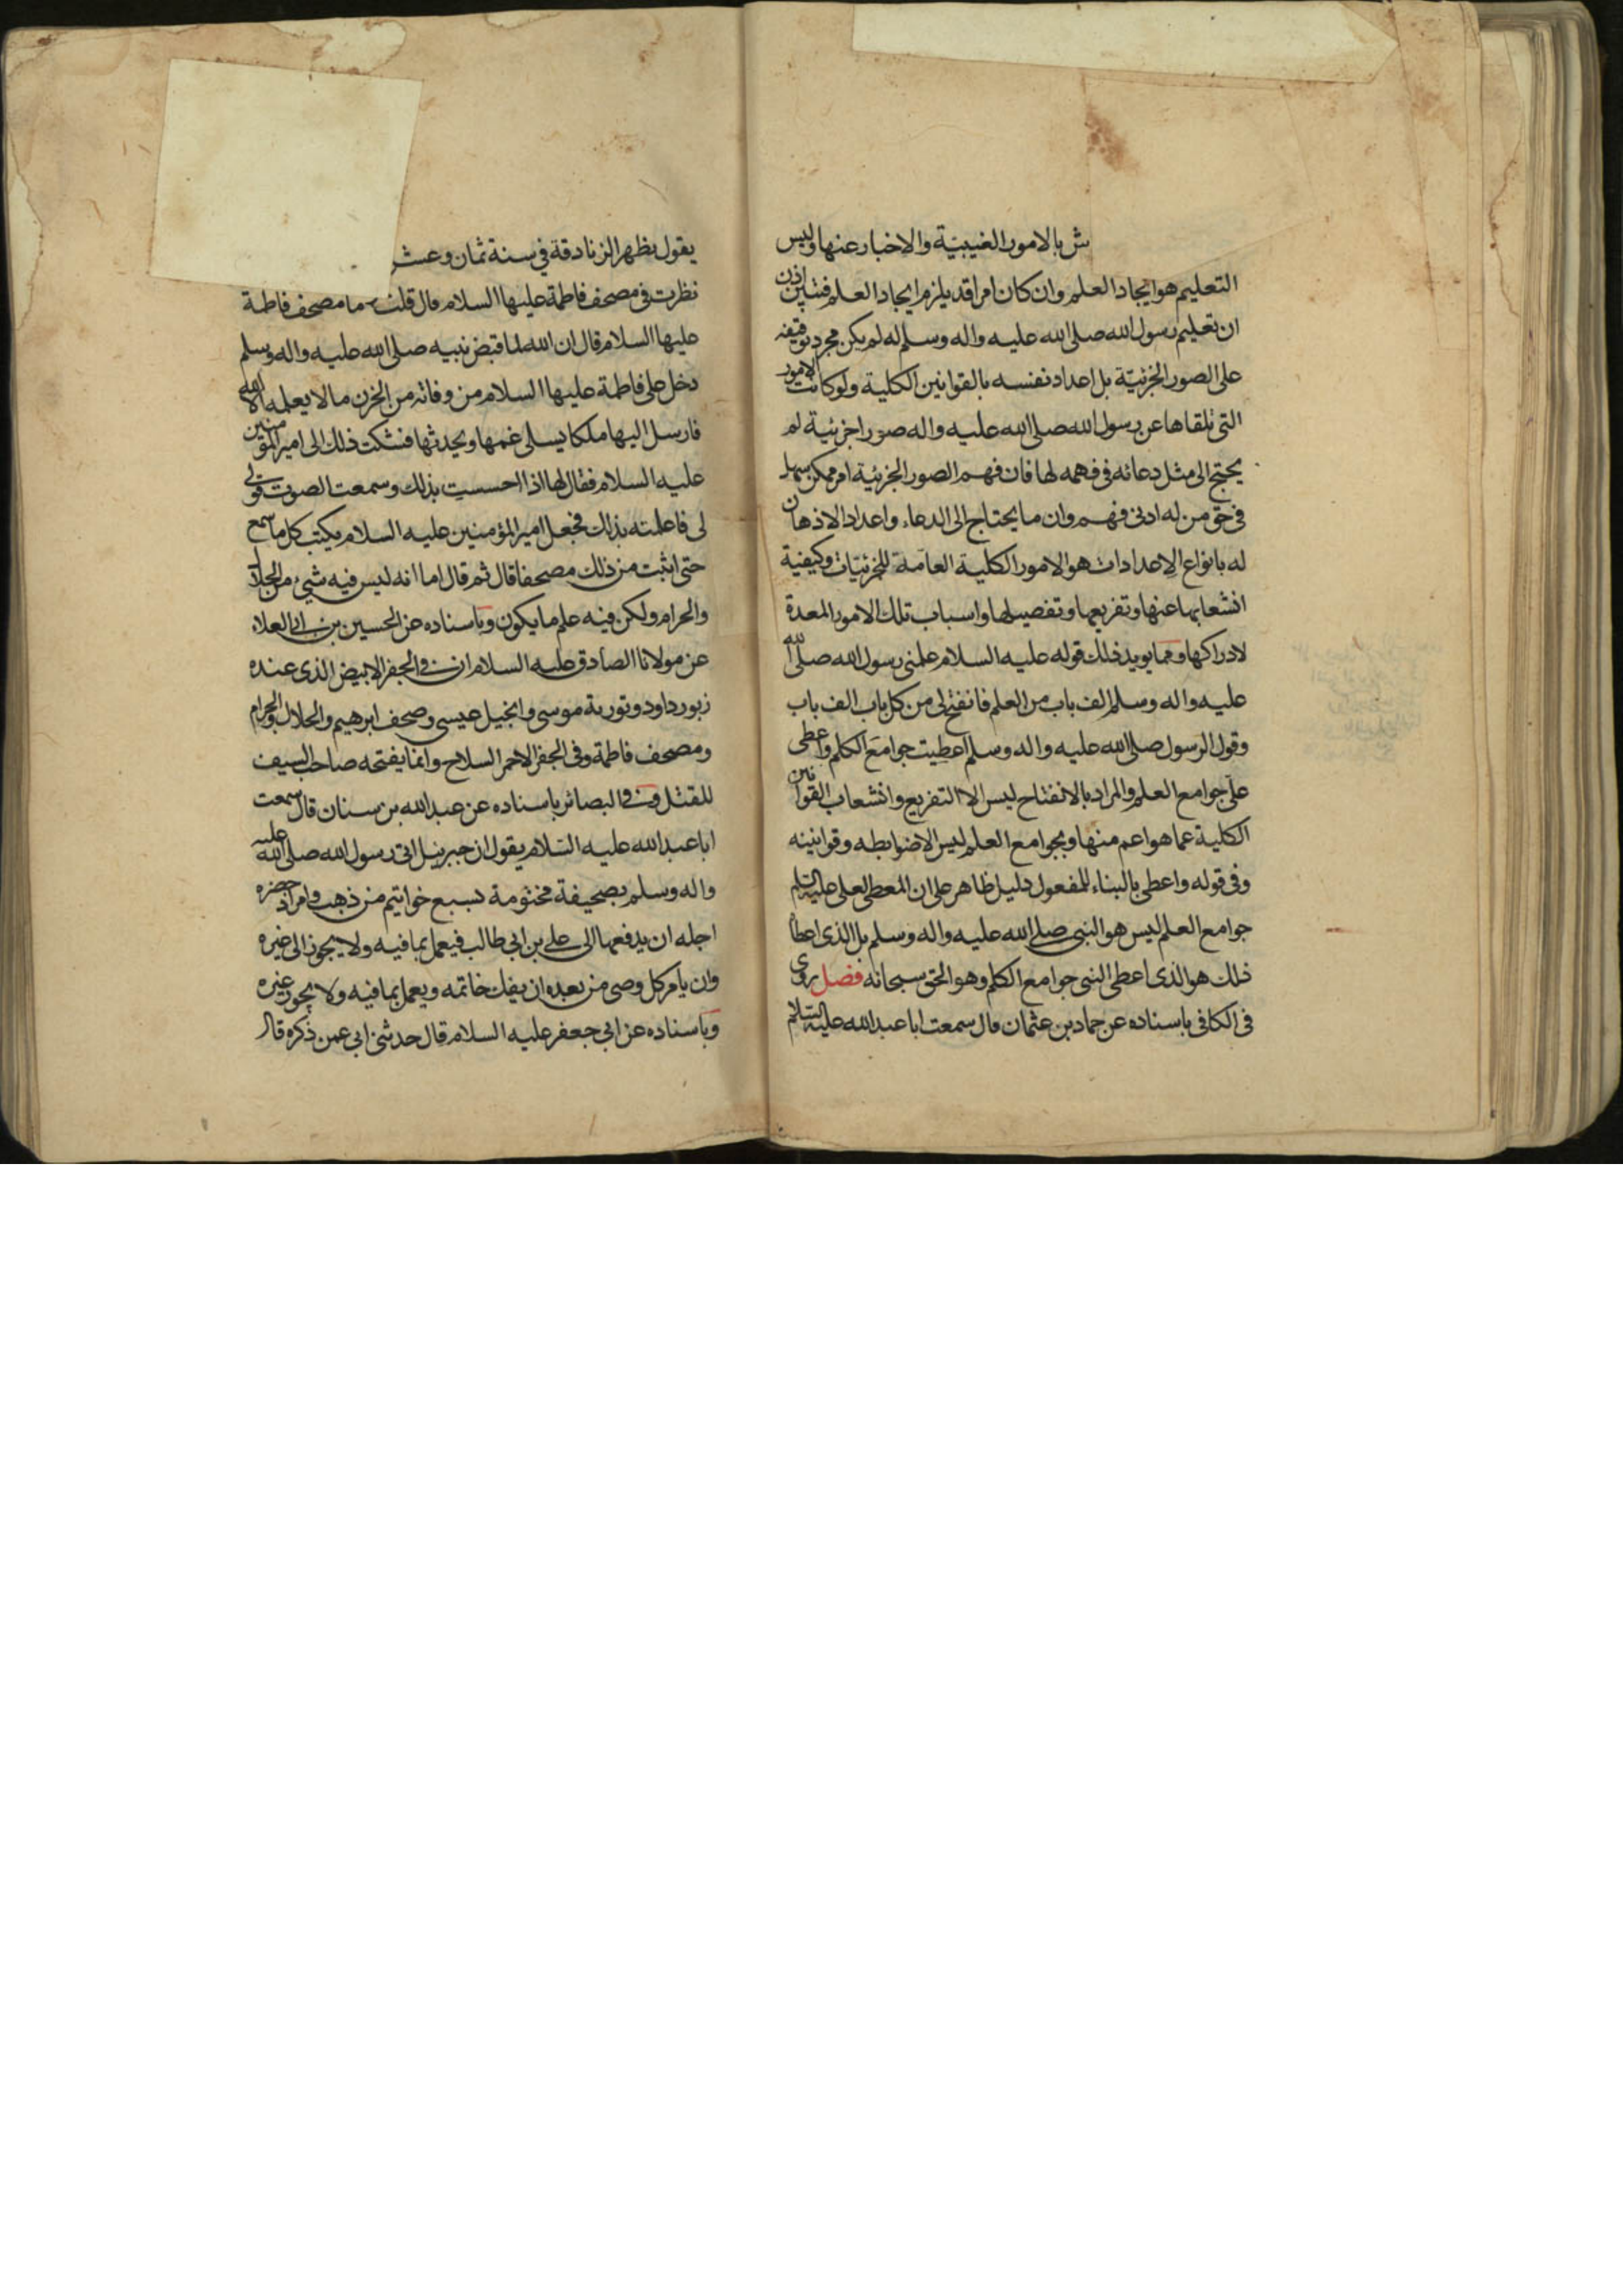 ش بالامور الغيبيّة والاخبار عنها وليس
التعليم هو ايجاد العلم وان كان امرا قد يلزم ايجاد العلم فتبين اذن
ان تعليم رسول الله صلى الله عليه واله وسلم له لم يكن مجرد توقيفه
على الصور الجزئيّة بل اعداد نفسه بالقوانين الكلية ولو كانت الامور
التى تلقاها عن رسول الله صلى الله عليه واله صورا جزئية لم
يحتج الى مثل دعائه فى فهمه لها فان فهم الصور الجزئية امر ممكن سهل
فى حق من له ادنى فهم وان ما يحتاج الى الدعاء واعداد الاذهان
له بانواع الاعدادات هو الامور الكلية العامّة للجزئيّات وكيفية
انشعابها عنها وتفريعها وتفصيلها واسباب تلك الامور المعدة
لادراكها ومما يويد ذلك قوله عليه السلام علمنى رسول الله صلى الله
عليه واله وسلم الف باب من العلم فانفتح لى من كل باب الف باب
وقول الرسول صلى الله عليه واله وسلم اعطيت جوامع الكلم واعطى
على جوامع العلم والمراد بالانفتاح ليس الا التفريع وانشعاب القوانين
الكلية عما هو اعم منها وبجوامع العلم ليس الا ضوابطه وقوانينه
وفى قوله واعطى بالبناء للمفعول دليل ظاهر على ان المعطى لعلى عليه السلم
جوامع العلم ليس هو النبى صلى الله عليه واله وسلم بل الذى اعطاه
ذلك هو الذى اعطى النبى جوامع الكلم وهو الحق سبحانه فصل روى
فى الكافى باسناده عن حماد بن عثمان قال سمعت ابا عبدالله عليه السلام
يقول يظهر الزنادقة في سنة ثمان وعشر
نظرت فى مصحف فاطمة عليها السلام قال قلت ما مصحف فاطمة
عليها السلام قال ان الله لما قبض نبيه صلى الله عليه واله وسلم
دخل على فاطمة عليها السلام من وفاته من الحزن ما لا يعلمه الا الله
فارسل اليها ملكا يسلى غمها ويحدثها فشكت ذلك الى امير المؤمنين
عليه السلام فقال لها اذا احسست بذلك وسمعت الصوت قولى
لى فاعلمته بذلك فجعل امير المؤمنين عليه السلام يكتب كل ما سمع
حتى اثبت من ذلك مصحفا قال ثم قال اما انه ليس فيه شئ من الحلال
والحرام ولكن فيه علم ما يكون وباسناده عن الحسين بن ابى العلاء
عن مولانا الصادق عليه السلام ان فى الجفر الابيض الذى عنده
زبور داود وتورية موسى وانجيل عيسى وصحف ابرهيم والحلال والحرام
ومصحف فاطمة وفى الجفر الاحمر السلاح وانما يفتحه صاحب السيف
للقتل وفى البصائر باسناده عن عبدالله بن سنان قال سمعت
ابا عبدالله عليه السلام يقول ان جبرئيل اتى رسول الله صلى الله عليه
واله وسلم بصحيفة مختومة بسبع خواتيم من ذهب وامر اذا حضره
اجله ان يدفعها الى على بن ابى طالب فيعمل بما فيه ولا يجوز الى غيره
وان يامر كل وصى من بعده ان يفك خاتمه ويعمل بما فيه ولا يجوز غيره
وباسناده عن ابى جعفر عليه السلام قال حدثنى ابى عمن ذكره قال